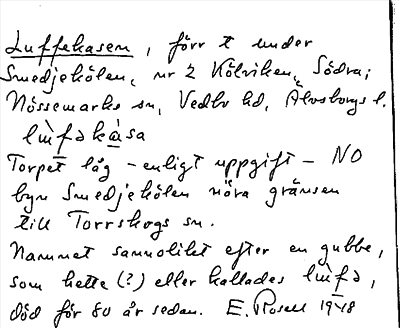 Luffekasen, förr t under
Smedjekölen, nr 2 Kölviken, Södra;
Nössemarks sn, Vedbo hd, Älvsborgs l.
lùfəkàsa
Torpet låg - enligt uppgift - NO
byn Smedjekölen nära gränsen
till Torrskogs sn.
Namnet sannolikt efter en gubbe,
som hette (?) eller kallades lùfə,
död för 80 år sedan. E. Rosell 1948